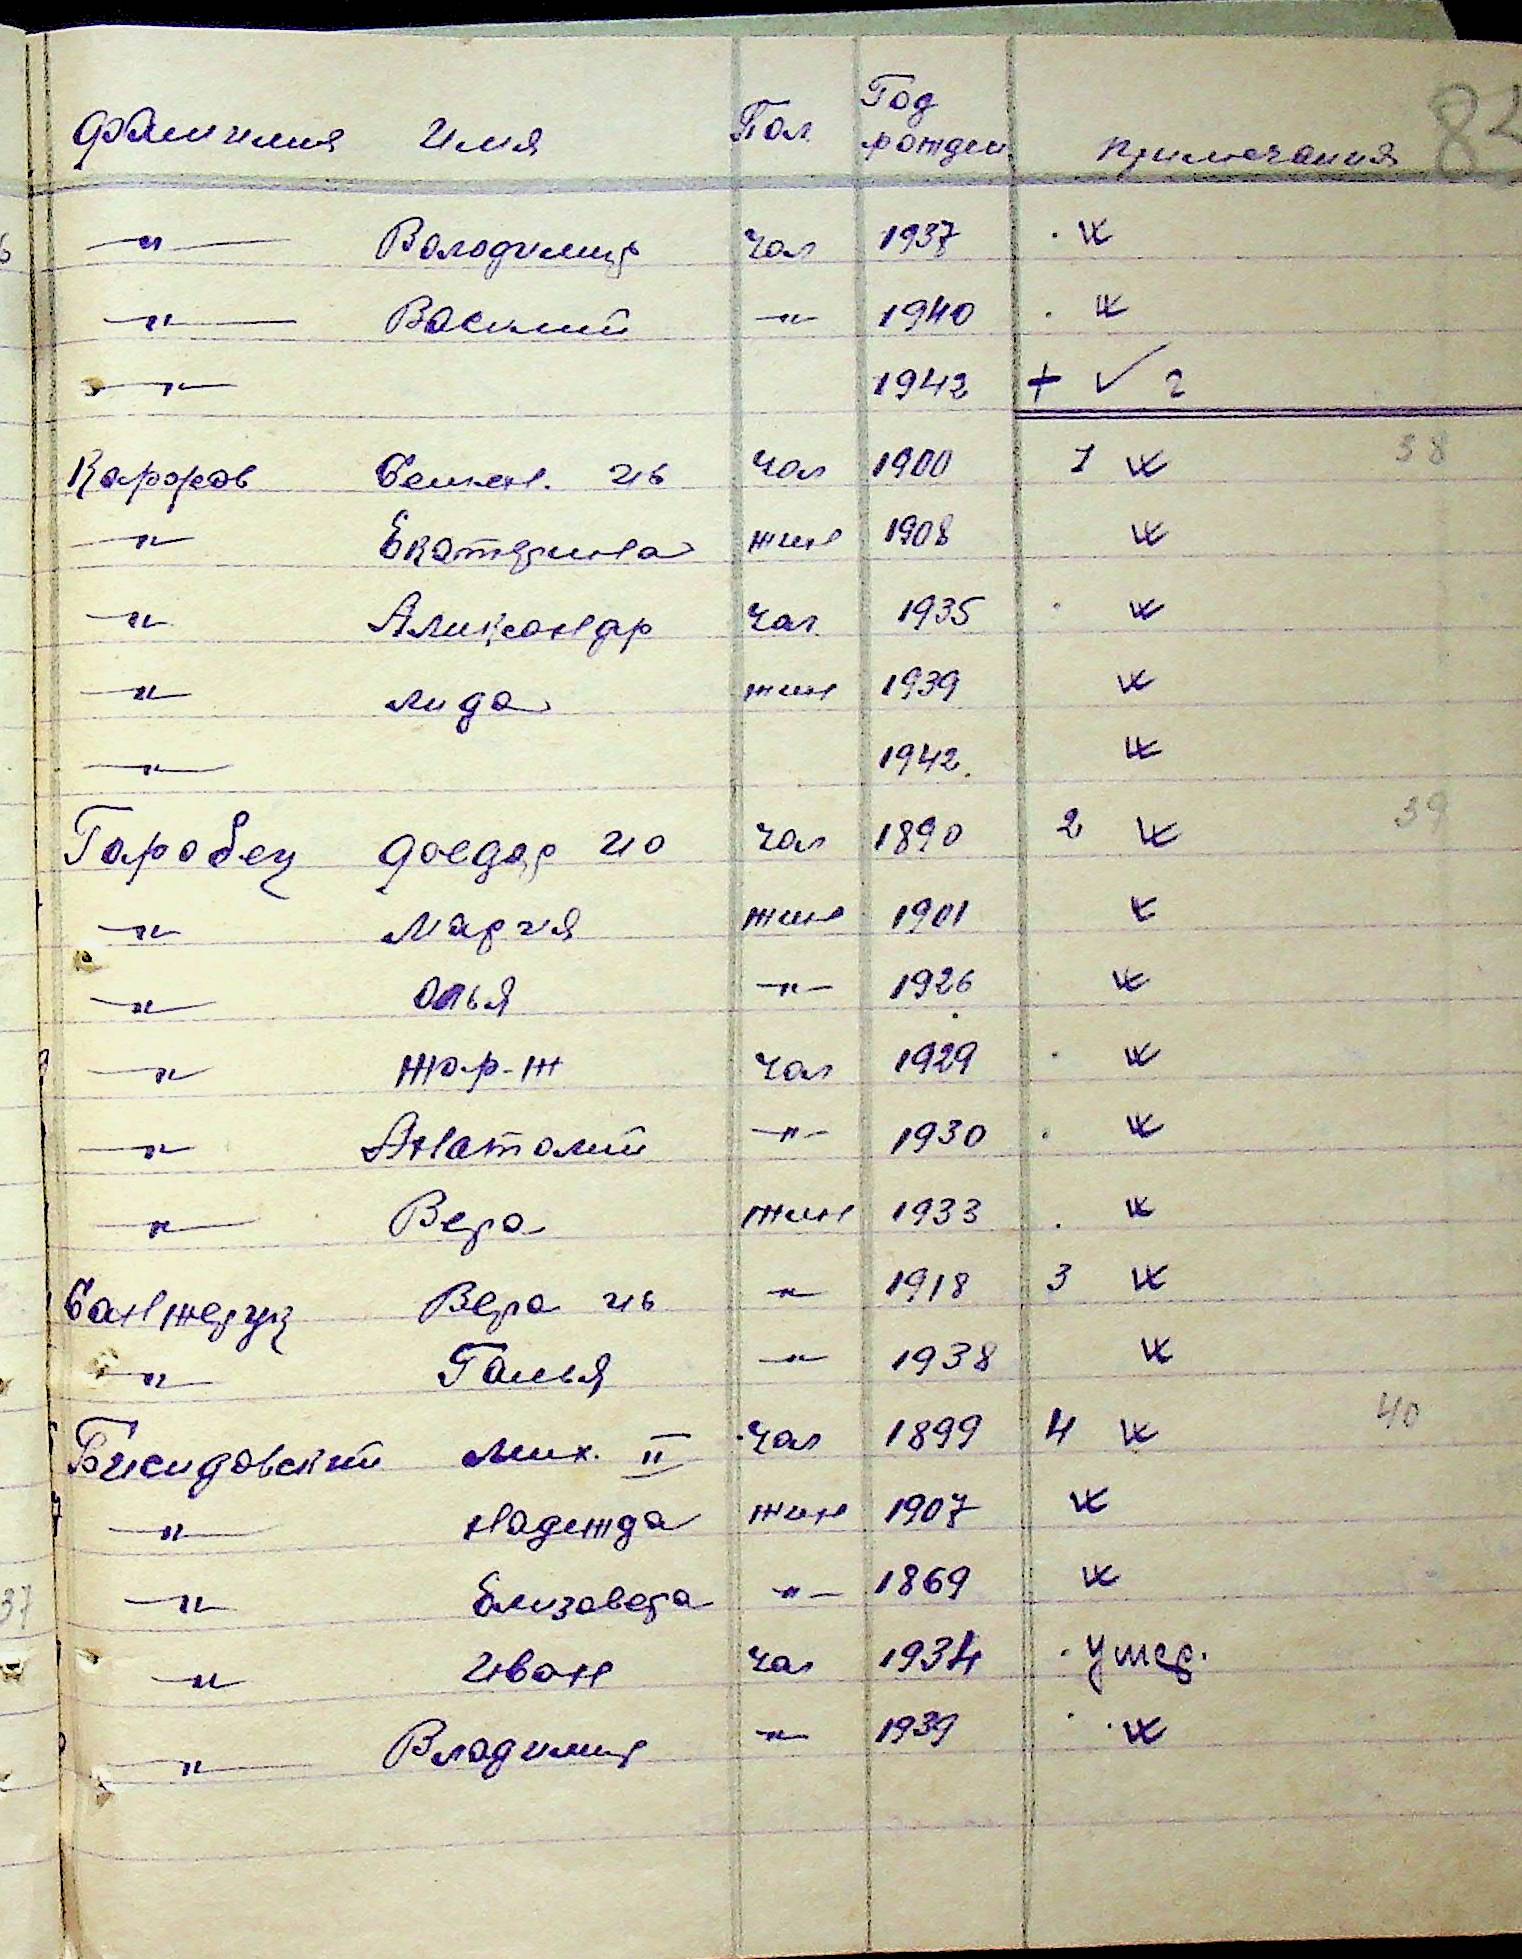 Фамилия Имя Пол Год рожден Примечания
—"— Володимир чол 1937 . ж
—"— Василий —"— 1940 . ж
—"— 1942 + ✓ 2
чол 1900 1 ж 38
—"— Екатерина жин 1908 ж
—"— Александр чол 1935 . ж
—"— Лида жин 1939 ж
—"— 1942. ж
Горобец Фоедор ИО чол 1890 2 ж 39
—"— Мария жин 1901 ж
—"— Олья —"— 1926 ж
—"— Жор-ж чол 1929 . ж
—"— Анатолий —"— 1930 . ж
—"— Вера жин 1933 . ж
Вера —"— 1918 3 ж
—"— Галья —"— 1938 ж
Мих. II чол 1899 4 ж 40
—"— Надежда жин 1907 ж
—"— Елизавета —"— 1869 ж
—"— Иван чол 1934 . Умер.
—"— Владимир —"— 1939 . ж